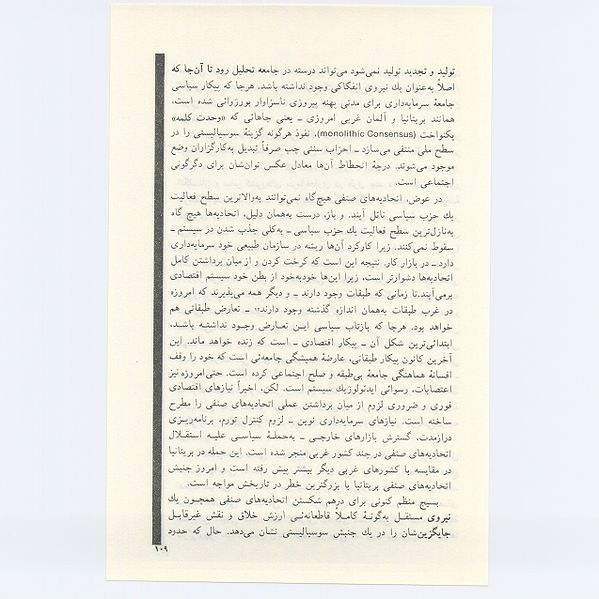 تولید و تجدید تولید نمی‌شود می‌تواند درسته در جامعه تحلیل رود تا آن‌جا که
اصلاً به‌عنوان یك نیروی انفکاکی وجود نداشته باشد. هرجا که پیکار سیاسی
جامعهٔ سرمایه‌داری برای مدتی بهنه پیروزی ناسزاوار بورژوائی شده است،
همانند بریتانیا و آلمان غربی امروزی ــ یعنی جاهائی که «وحدت کلمه»
یکنواخت (monolithic Consensus)، نفوذ هرگونه گزینهٔ سوسیالیستی را در
سطح ملی منتفی می‌سازد ــ احزاب سنتی چپ صرفاً تبدیل به‌کارگزاران وضع
موجود می‌شوند. درجهٔ انحطاط آن‌ها معادل عکس توان‌شان برای دگرگونی
اجتماعی است.
در عوض، اتحادیه‌های صنفی هیچ‌گاه نمی‌توانند به‌والاترین سطح فعالیت
یك حزب سیاسی نائل آیند. و باز، درست به‌همان دلیل، اتحادیه‌ها هیچ گاه
به‌نازل‌ترین سطح فعالیت یك حزب سیاسی ــ به‌کلی جذب شدن در سیستم ــ
سقوط نمی‌کنند. زیرا کارکرد آن‌ها ریشه در سازمان طبیعی خود سرمایه‌داری
دارد ــ در بازار کار. نتیجه این است که کرخت کردن و از میان برداشتن کامل
اتحادیه‌ها دشوارتر است، زیرا این‌ها خودبه‌خود از بطن خود سیستم اقتصادی
برمی‌آیند. تا زمانی که طبقات وجود دارند ــ و دیگر همه می‌پذیرند که امروزه
در غرب طبقات به‌همان اندازه گذشته وجود دارند ــ تعارض طبقاتی هم
خواهد بود. هرجا که بازتاب سیاسی ایـن تعـارض وجـود نداشتـه باشـد،
ابتدائی‌ترین شکل آن ــ پیکار اقتصادی ــ است که زنده خواهد ماند. این
آخرین کانون پیکار طبقاتی، عارضهٔ همیشگی جامعه‌ئی است که خود را وقف
افسانهٔ هماهنگی جامعهٔ بی‌طبقه و صلح اجتماعی کرده است. حتی‌امروزه نیز
اعتصابات، رسوائی ایدئولوژیك سیستم است. لکن، اخیراً نیازهای اقتصادی
فوری و ضروری لزوم از میان برداشتن عملی اتحادیه‌های صنفی را مطرح
ساخته است. نیازهای سرمایه‌داری نوین ــ لزوم کنترل تورم، برنامه‌ریـزی
درازمدت، گسترش بازارهای خارجـی ــ به‌حملـهٔ سیاسـی علیـه استقـلال
اتحادیه‌های صنفی در چند کشور غربی منجر شده است. این حمله در بریتانیا
در مقایسه با کشورهای غربی دیگر بیشتر پیش رفته است و امروز جنبش
اتحادیه‌های صنفی بریتانیا با بزرگترین خطر در تاریخش مواجه است.
بسیج منظم کنونی برای درهم شکستن اتحادیه‌های صنفی همچـون یك
نیروی مستقل به‌گونهٔ کامـلاً قاطعانه‌ئـی ارزش خلاق و نقش غیرقابـل
جایگزین‌شان را در یك جنبش سوسیالیستی نشان می‌دهد. حال که حدود
۱۰۹